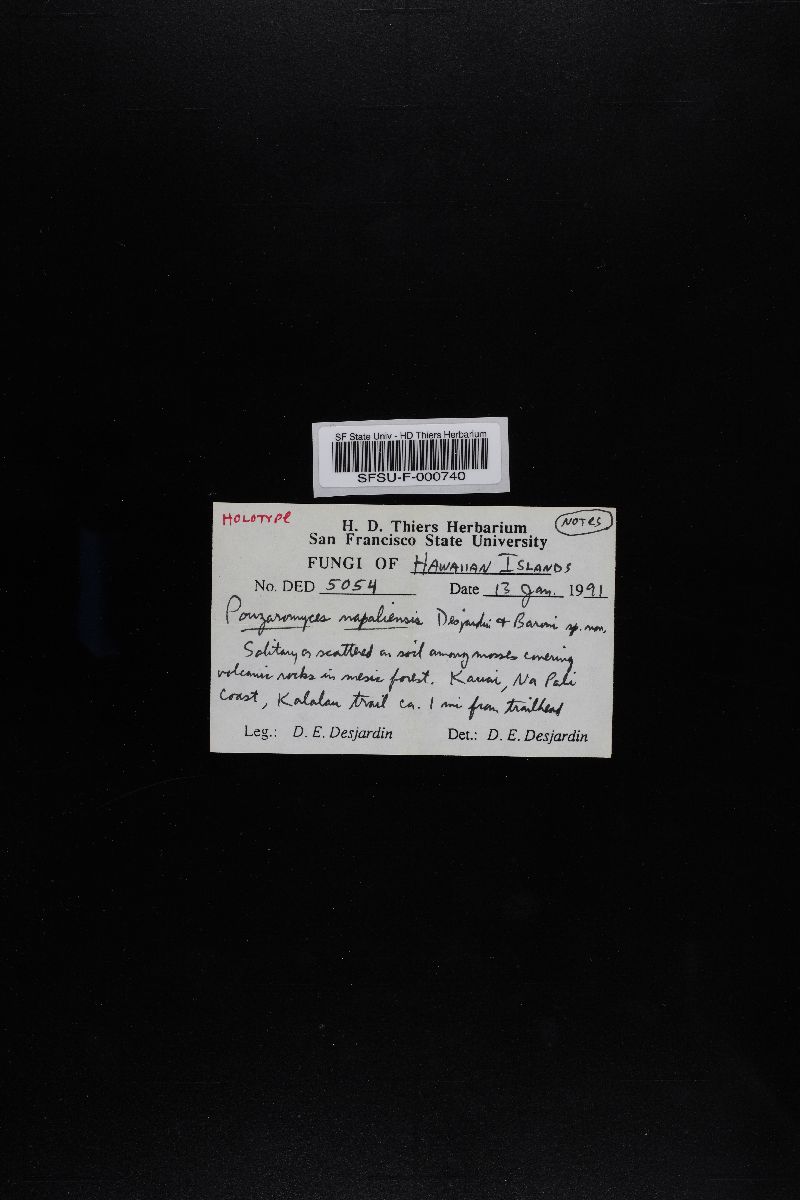 SF State Univ - HD Thiers Herbarium
SFSU-F-000740
HOLOTYPE
NOTES
H. D. Thiers Herbarium
San Francisco State University
FUNGI OF HAWAIIAN ISLANDS
No. DED 5054 Date 13 Jan. 1991
Pouzaromyces napaliensis Desjardin & Baroni sp. nov.
Solitary or scattered on soil among mosses covering
volcanic rocks in mesic forest. Kauai, Na Pali
Coast, Kalalau trail ca. 1 mi from trailhead
Leg.: D. E. Desjardin Det.: D. E. Desjardin